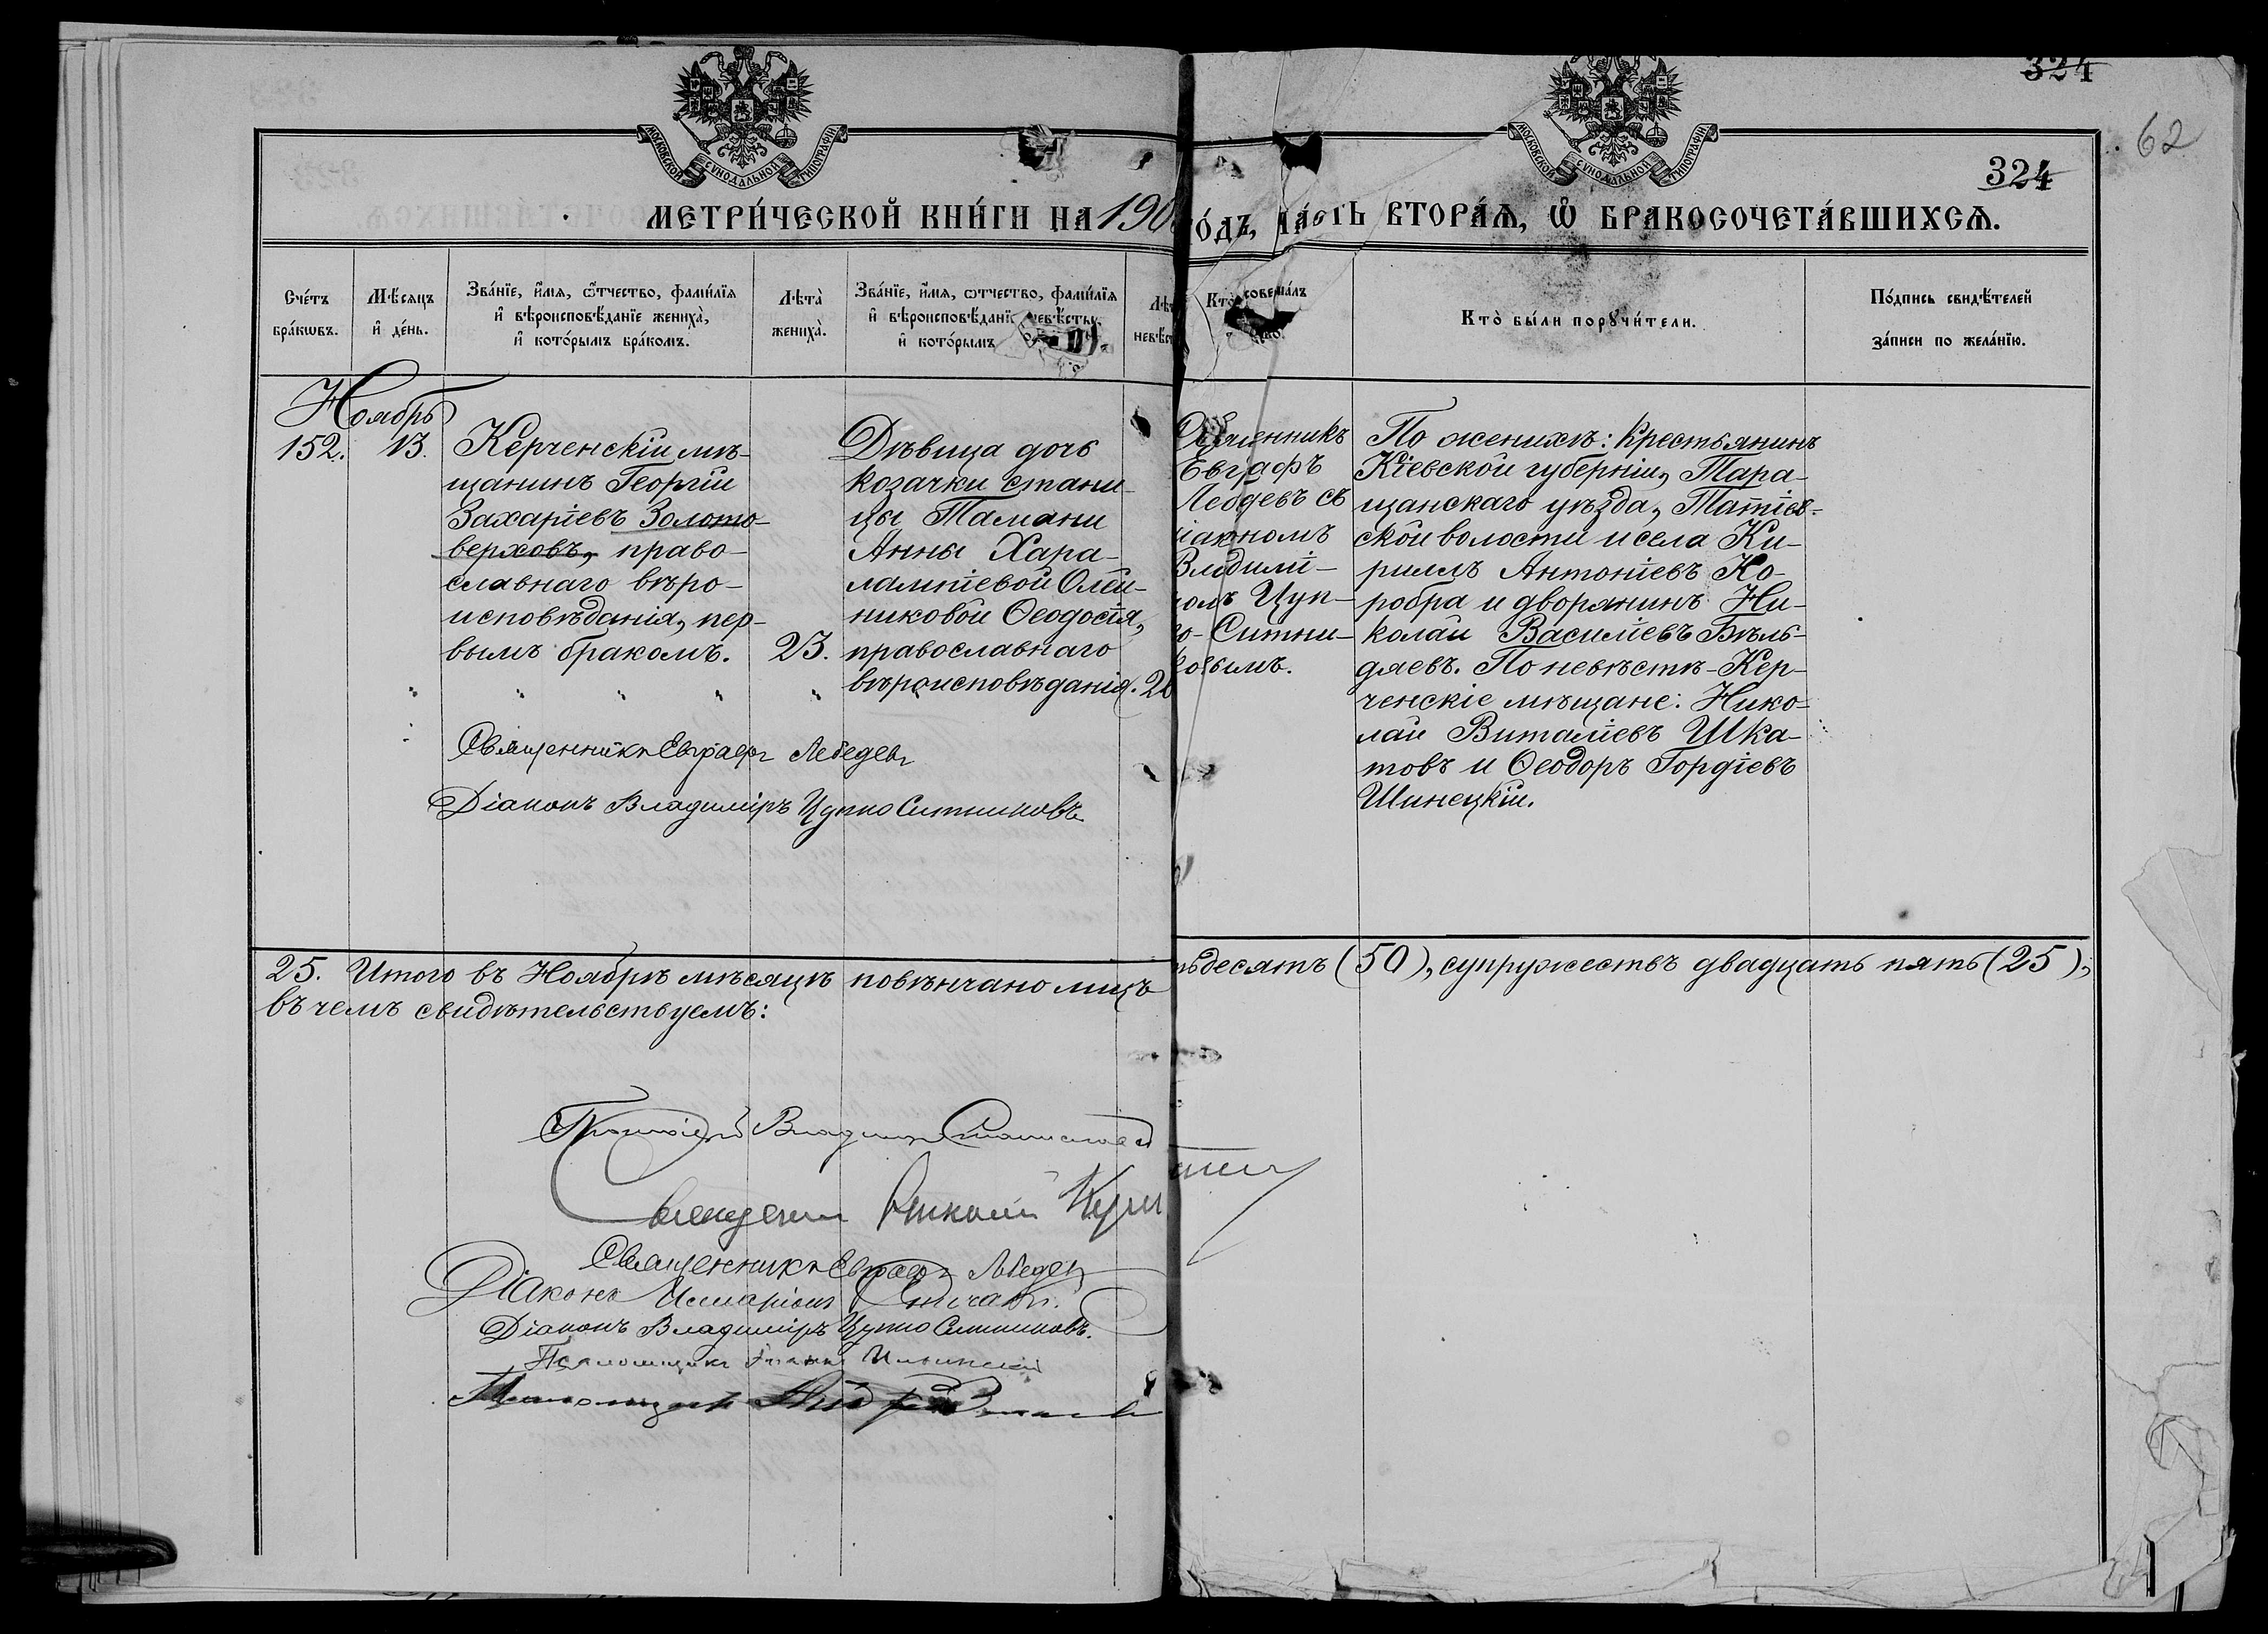 324
62
324
МОСКОВСКОЙ СѴНОДАЛЬНОЙ ТИПОГРАФІИ
МОСКОВСКОЙ СѴНОДАЛЬНОЙ ТИПОГРАФІИ
МЕТРИ́ЧЕСКОЙ КНИ́ГИ НА 190
ОДЪ, ЧАСТЬ ВТОРА́Я, Ѡ҆ БРАКОСОЧЕТА́ВШИХСЯ.
Сче́тъ
бра́кѡвъ.
Мѣ́сяцъ
и҆ де́нь.
Зва́нїе, и҆́мя, ѻ҆́тчество, фамилїя
и҆ вѣроисповѣ́данїе жениха̀,
и҆ кото́рымъ бра́комъ.
Лѣта̀
жениха̀.
Зва́нїе, и҆́мя, ѻтчество, фамилїя
и҆ вѣроисповѣ́данїе невѣ́сты,
и҆ кото́рымъ
Лѣт
невѣст
Кто̀ совершалъ
Кто̀ бы́ли порꙋчи́тели.
По́дпись свидѣ́телей
за́писи по жела́нїю.
Ноябрь
152.
13.
Керченскій мѣ-
щанинъ Георгій
Захаріевъ Золото-
верховъ, право-
славнаго вѣро-
исповѣданія, пер-
вымъ бракомъ.
23.
Дѣвица дочь
козачки стани-
цы Тамани
Анны Хара-
лампіевой Олей-
никовой Ѳеодосія,
православнаго
вѣроисповѣданія.
2
Священникъ
Евграфъ
Лебдевъ съ
іакономъ
Владимі-
омъ Цуп-
о-Ситни-
ковымъ.
По женихѣ: Крестьянинъ
Кіевской губерніи, Тара-
щанскаго уѣзда, Татіев-
ской волости и села Ки-
риллъ Антоніевъ Ко-
робра и дворянинъ Ни-
колай Василіевъ Бѣль-
дяевъ. По невѣстѣ - Кер-
ченскіе мѣщане: Нико-
лай Виталіевъ Шка-
товъ и Ѳеодоръ Гордіевъ
Шинецкій.
Священникъ Евграфъ Лебедевъ
Діаконъ Владиміръ Цупко Ситниковъ
25. Итого въ Ноябрѣ мѣсяцѣ повѣнчано лицъ
ьдесятъ (50), супружествъ двадцать пять (25),
въ чемъ свидѣтельствуемъ:
Протоіерей Владимиръ
Священникъ Николай
Священникъ Евграфъ Лебедевъ
Діаконъ Илларіонъ
Діаконъ Владиміръ Цупко Ситниковъ.
Псаломщикъ
Псаломщикъ